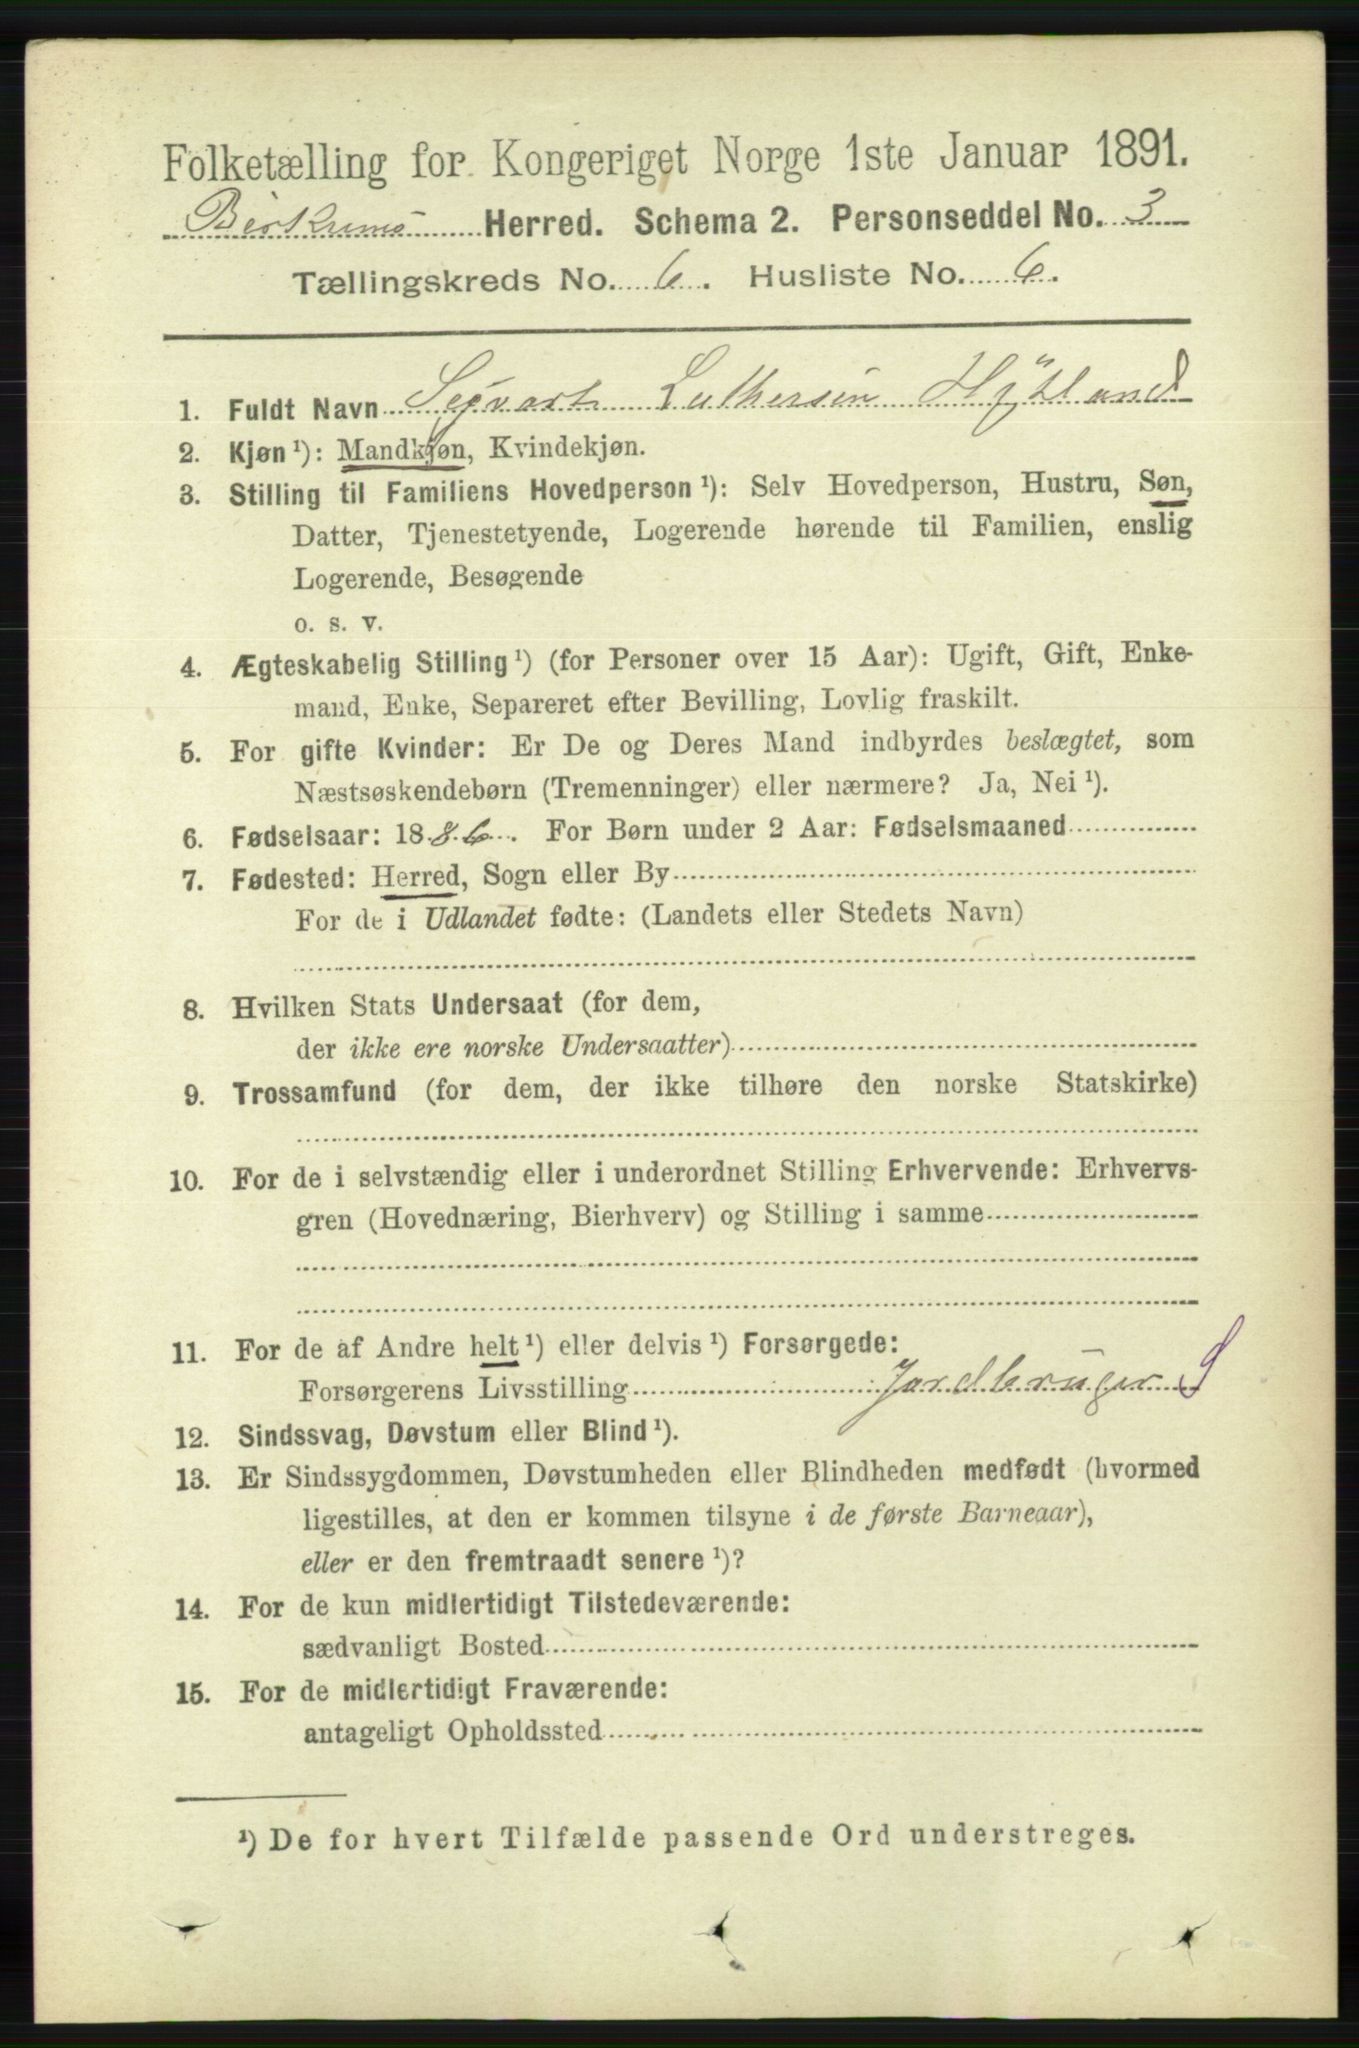 Folketælling for Kongeriget Norge 1ste Januar 1891.
Birkrems Herred. Schema 2. Personseddel No. 3
Tællingskreds No. 6. Husliste No. 6.
1. Fuldt Navn Sigvart Luthersen Hÿtland
2. Kjøn ¹): Mandkjøn, Kvindekjøn.
3. Stilling til Familiens Hovedperson ¹): Selv Hovedperson, Hustru, Søn,
Datter, Tjenestetyende, Logerende hørende til Familien, enslig
Logerende, Besøgende
o. s. v.
4. Ægteskabelig Stilling ¹) (for Personer over 15 Aar): Ugift, Gift, Enke-
mand, Enke, Separeret efter Bevilling, Lovlig fraskilt.
5. For gifte Kvinder: Er De og Deres Mand indbyrdes beslægtet, som
Næstsøskendebørn (Tremenninger) eller nærmere? Ja, Nei ¹).
6. Fødselsaar: 1886. For Børn under 2 Aar: Fødselsmaaned
7. Fødested: Herred, Sogn eller By
For de i Udlandet fødte: (Landets eller Stedets Navn)
8. Hvilken Stats Undersaat (for dem,
der ikke ere norske Undersaatter)
9. Trossamfund (for dem, der ikke tilhøre den norske Statskirke)
10. For de i selvstændig eller i underordnet Stilling Erhvervende: Erhvervs-
gren (Hovednæring, Bierhverv) og Stilling i samme
11. For de af Andre helt ¹) eller delvis ¹) Forsørgede:
Forsørgerens Livsstilling Jordbruger S
12. Sindssvag, Døvstum eller Blind ¹).
13. Er Sindssygdommen, Døvstumheden eller Blindheden medfødt (hvormed
ligestilles, at den er kommen tilsyne i de første Barneaar),
eller er den fremtraadt senere ¹)?
14. For de kun midlertidigt Tilstedeværende:
sædvanligt Bosted
15. For de midlertidigt Fraværende:
antageligt Opholdssted
¹) De for hvert Tilfælde passende Ord understreges.